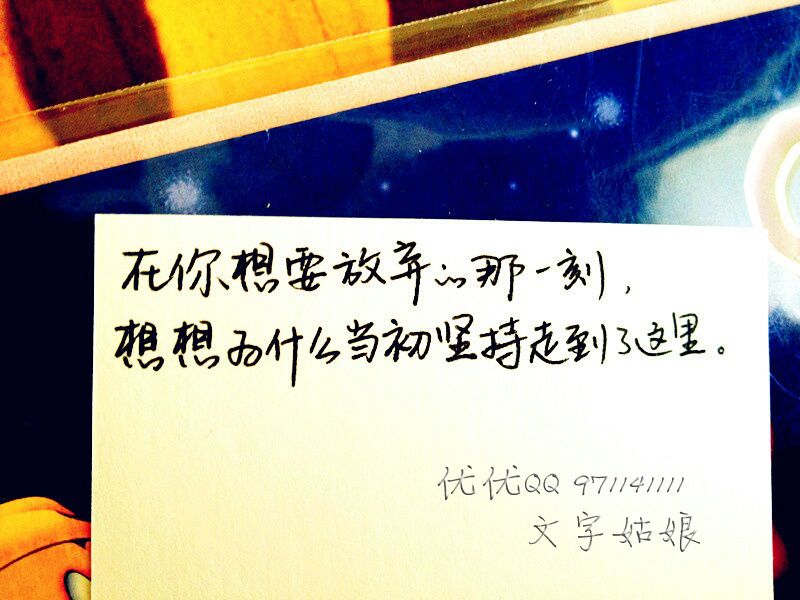 在你想要放弃的那一刻,
想想为什么当初坚持走到了这里。
优优QQ 971141111
文字姑娘